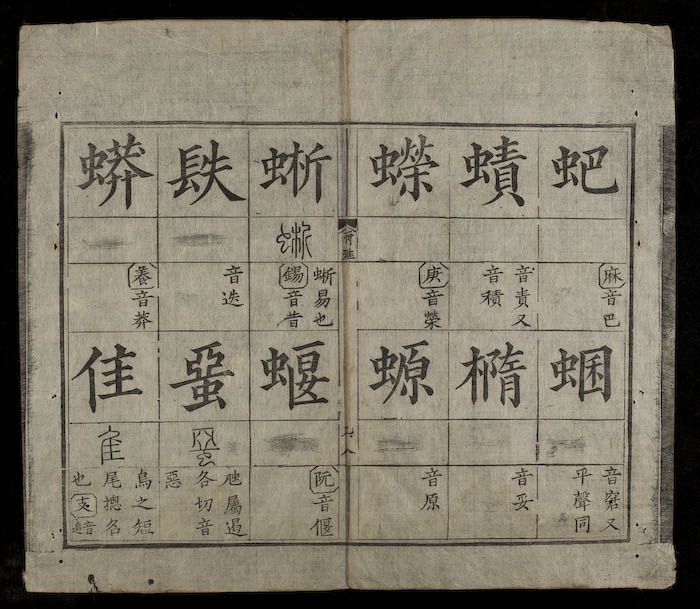 蚆
麻音巴
𧐐
音責又
音積
蠑
庚音榮
蜠
音窘又
平聲同
橢
音妥
螈
音原
蜥
蜥易也
錫音昔
镻
音迭
蟒
養音莽
蝘
阮音偃
蝁
虺屬遏
各切音
惡
隹
鳥之短
尾揔名
也支音追
七八